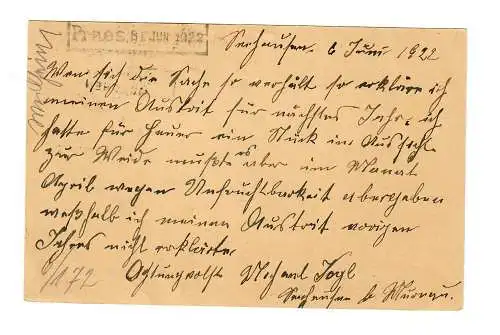 Präs. 8. JUN 1922
Seehausen. 6 Juni 1922
Wen sich die Sache so verhält so erkläre ich
meinen Austrit für nächstes Jahr. ich
hatte für Heuer ein Stück in Aussicht
zur Weide mußte es aber im Monat
April wegen Unfruchtbarkeit abergeben
weßhalb ich meinen Austrit vorigen
Jahres nicht erklärte.
Achtungvollst Michael
Seehausen b Murnau.
1172